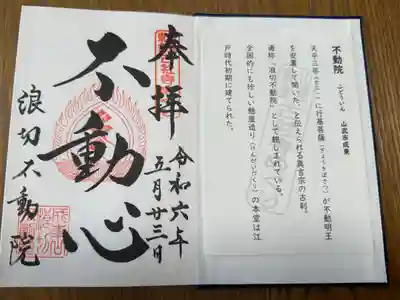 不動院
ふどういん　山武市成東
天平三年（七三一）に行基菩薩（ぎょうきぼさつ）が不動明王
を安置して開いた、と伝えられる真言宗の古刹。
通称『浪切不動院』として親しまれている。
全国的にも珍しい懸崖造り（けんがいづくり）の本堂は江
戸時代初期に建てられた。
奉拝
令和六年
五月廿三日
不動心
浪切不動院